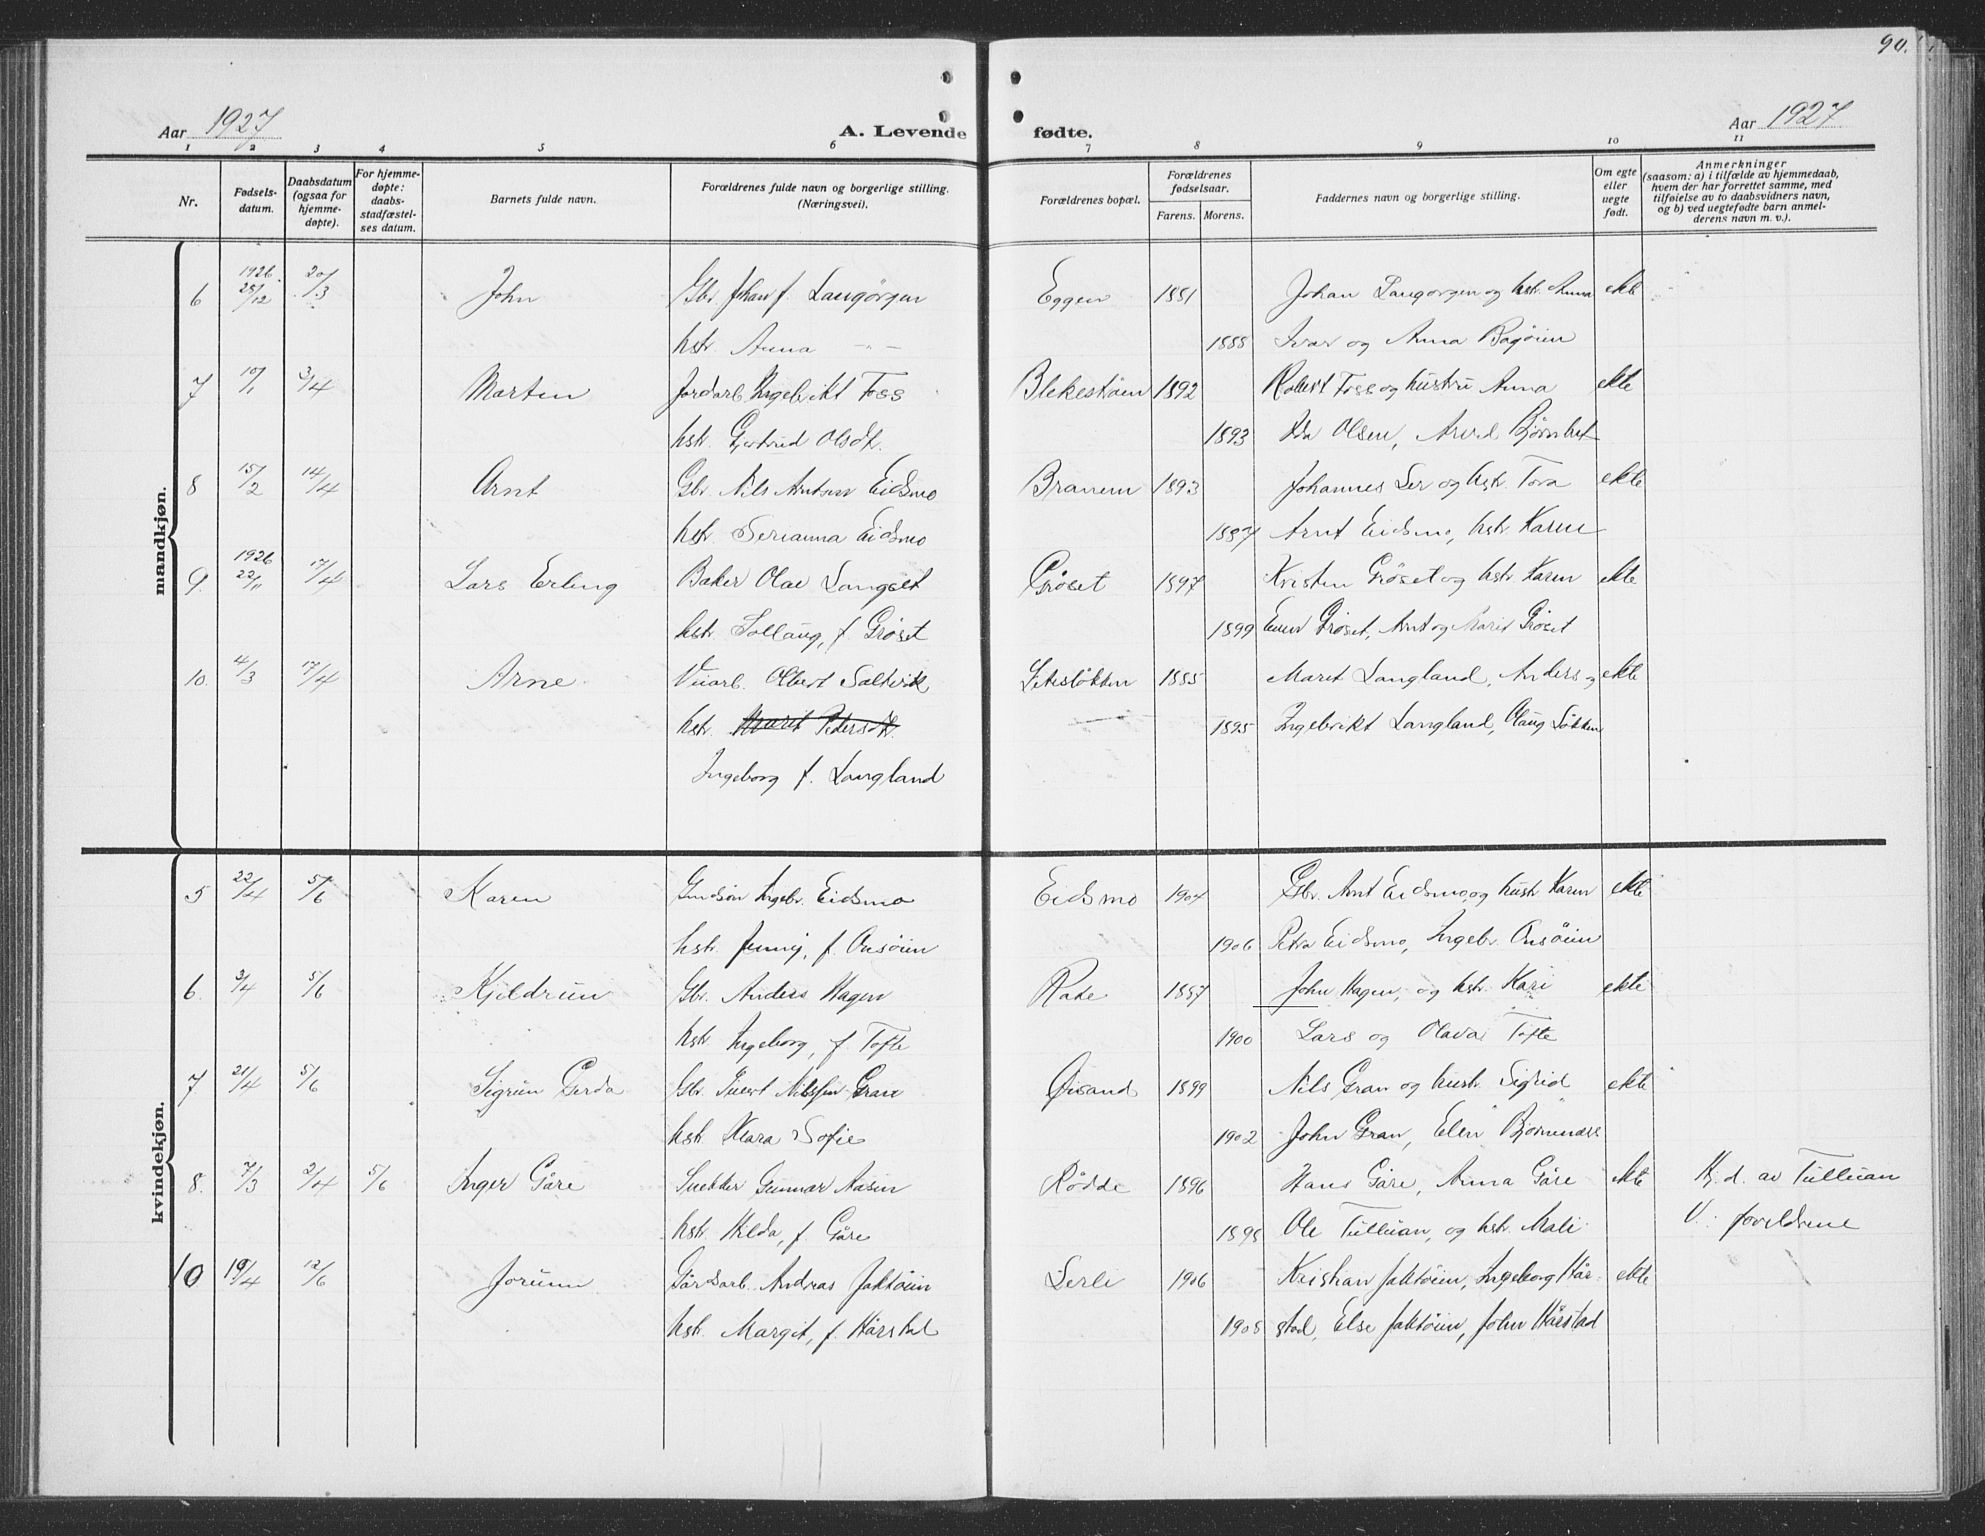 90.
Aar 1927 A. Levende fødte. Aar 1927
1 2 3 4 5 6 7 8 9 10 11
Nr. Fødsels-datum. Daabsdatum (ogsaa for hjemme-døpte). For hjemme-døpte: daabs-stadfæstel-ses datum. Barnets fulde navn. Forældrenes fulde navn og borgerlige stilling. (Næringsvei). Forældrenes bopæl. Forældrenes fødselsaar. Farens. Morens. Faddernes navn og borgerlige stilling. Om egte eller uegte født. Anmerkninger (saasom: a) i tilfælde av hjemmedaab, hvem der har forrettet samme, med tilføielse av to daabsvidners navn, og b) ved uegtefødte barn anmel-derens navn m. v.).
mandkjøn.
6 1926 28/12 20/3 John Gbr. Johan J. Langørgen Eggen 1881 Johan Langørgen og hstr. Anna ekte
hstr. Anna -"- 1888 Ivar og Anna Bagøien
7 10/1 3/4 Morten Jordarb. Ingebrikt Foss Blekestøen 1892 Robert Foss og hustru Anna ekte
hstr. Gjertrud Olsdt. 1893 Ida Olsen, Arvid Bjørnbet
8 15/2 14/4 Arnt Gbr. Nils Arntsen Eidsmo Branem 1893 Johannes Ler og hstr. Tora ekte
hstr. Serianna Eidsmo 1897 Arnt Eidsmo, hstr. Karen
9. 1926 22/11 17/4 Lars Erling Baker Olav Langset Grøset 1897 Kristen Grøset og hstr. Karen ekte
hstr. Sollaug, f. Grøset 1899 Even Grøset, Arnt og Marit Grøset
10. 4/3 17/4 Arne Viarb. Olbert Saltvik Litlsløkken 1885 Marit Langland, Anders og ekte
hstr. Marit Pedersdt. 1895 Ingebrikt Langland, Olaug Løkken
Ingeborg f. Langland
kvindekjøn.
5 22/4 5/6 Karen Grudsøn Ingebr. Eidsmo Eidsmo 1904 Gbr. Arnt Eidsmo, og hustr. Karen ekte
hstr. Jenny, f. Onsøien 1906 Petra Eidsmo, Ingebr. Onsøien
6. 3/4 5/6 Kjeldrun Gbr. Anders Hagen Rate 1897 John Hagen, og hstr. Kari ekte
hstr. Ingeborg, f. Tofte 1900 Lars og Olava Tofte
7 21/4 5/6 Sigrun Gerda Gbr. Sivert Nilssen Gran Øisand 1899 Nils Gran og hustr. Sigrid ekte
hstr. Klara Sofie 1902 John Gran, Elen Bjørnenass
8. 7/3 2/4 5/6 Inger Gåre Snekker Gunnar Aasen Rødde 1896 Hans Gåre, Anna Gåre ekte Hj. d. av Tulluan
hstr. Hilda, f. Gåre 1898 Ole Tulluan, og hstr. Mali V: foreldrene
10 19/4 12/6 Jorunn Gårdsarb. Andreas Jaktøien Lerli 1906 Kristian Jaktøien, Ingeborg Hår- ekte
hstr. Margit, f. Hårstad 1905 stad, Else Jaktøien, John Hårstad